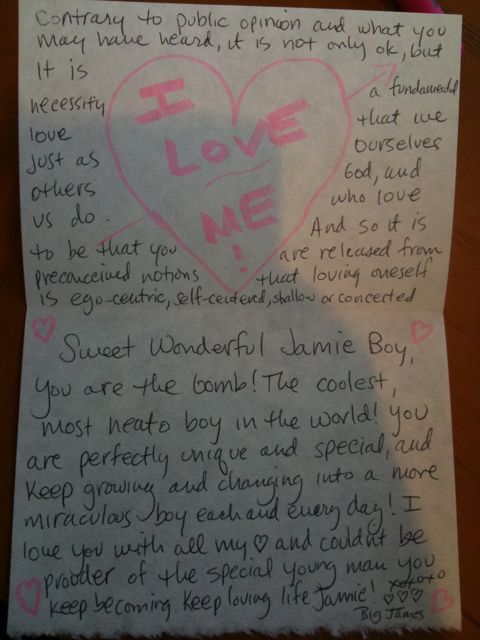 Contrary to public opinion and what you
may have heard, it is not only ok, but
It is a fundamental
necessity that we
love ourselves
just as God, and
others who love
us do. And so it is
to be that you are released from
preconceived notions that loving oneself
is ego-centric, self-centered, shallow or concerted
I
LOVE
ME
!
Sweet Wonderful Jamie Boy,
You are the bomb! The coolest,
most neato boy in the world! You
are perfectly unique and special, and
Keep growing and changing into a more
miraculous boy each and every day! I
love you with all my ♡ and couldn't be
prouder of the special young man you
keep becoming. Keep loving life Jamie! xoxoxo
♡♡♡
Big James